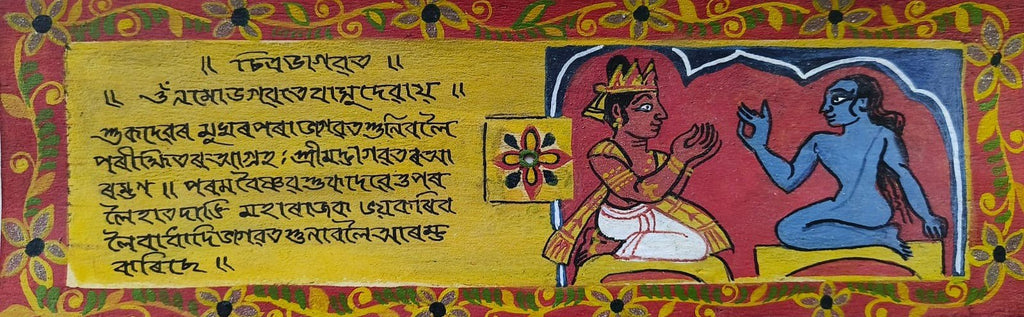 ॥ চিত্ৰভাগৱত ॥
॥ ওঁনমোভগৱতেবাসুদেৱায় ॥
শুকদেৱৰ মুখৰপৰা ভাগৱতশুনিবলৈ
পৰীক্ষিতৰআগ্ৰহ; শ্ৰীমদ্ভাগৱতৰআ
ৰম্ভণ ॥ পৰমবৈষ্ণৱশুকদেৱেওপৰ
লৈহাতদাঙি মহাৰাজক জয়কৰিব
লৈবাধাদিভাগৱতশুনাবলৈআৰম্ভ
কৰিছে ॥